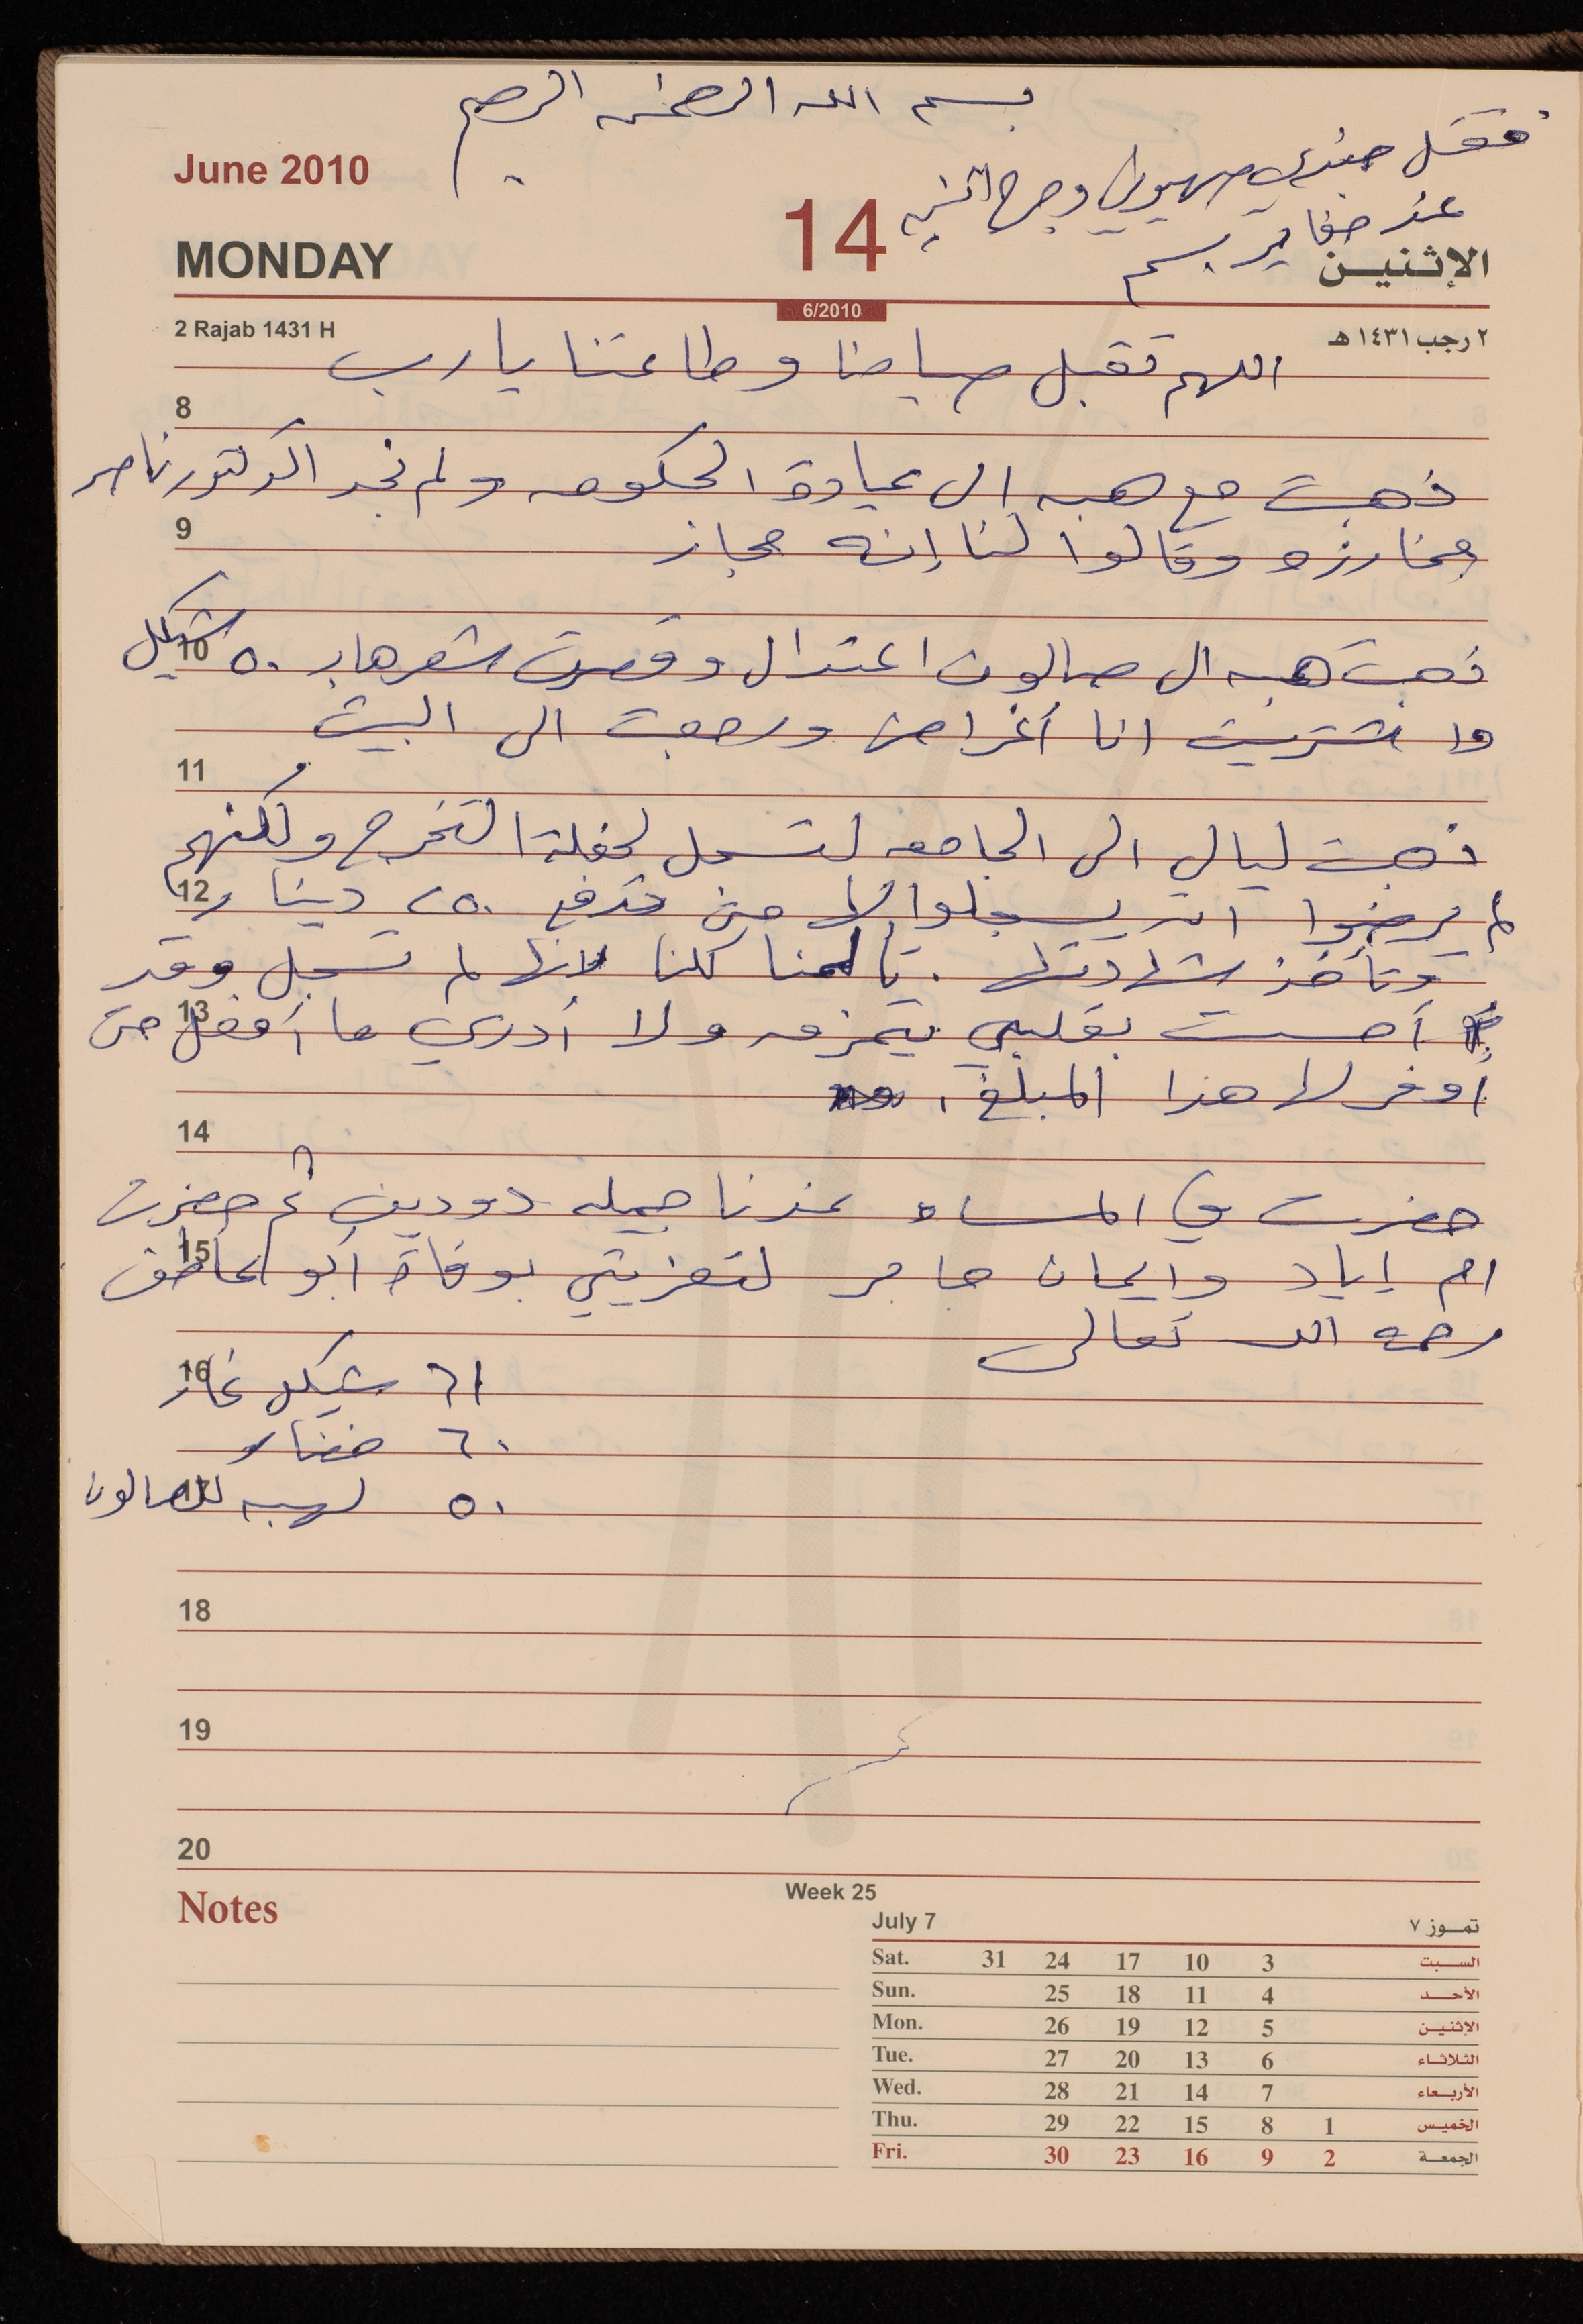 بسم الله الرحمن الرحيم
مقتل جندي صهيوني وجرح اثنين
عند حفاير بسم
June 2010
14
MONDAY
الإثنين
6/2010
2 Rajab 1431 H
٢ رجب ١٤٣١ هـ
اللهم تقبل صيامنا وطاعتنا يا رب
8
ذهبت مع هبه الى عيادة الحكومه ولم نجد الدكتور ناصر
9
مخارزه وقالوا لنا إنه مجاز
10
ذهبت هبه الى صالون اعتدال وقصت شعرها بـ ٥٠ شيكل
واشتريت انا أغراض ورجعت الى البيت
11
ذهبت ليالي الى الجامعه لتسجل لحفلة التخرج ولكنهم
12
لم يرضوا ان يسجلوا الا حتى تدفع ٢٥٠ دينار
وتأخذ شهادتها . تألمنا كلنا لانها لم تسجل وقد
13
أحسست بقلبي يتمزق ولا أدري ما أفعل حتى
أوفر لها هذا المبلغ .
14
حضرت في المساء عندنا جميله دودين ثم حضرت
15
ام اياد وايمان جابر لتعزيتي بوفاة أبو عاطف
رحمه الله تعالى
16
٦١ شيكل غاز
٦٠ خضار
17
٥٠ لهبه للصالون
18
19
20
Notes
Week 25
July 7
تمــوز ٧
Sat. 31 24 17 10 3 السبت
Sun. 25 18 11 4 الأحد
Mon. 26 19 12 5 الإثنين
Tue. 27 20 13 6 الثلاثاء
Wed. 28 21 14 7 الأربعاء
Thu. 29 22 15 8 1 الخميس
Fri. 30 23 16 9 2 الجمعة